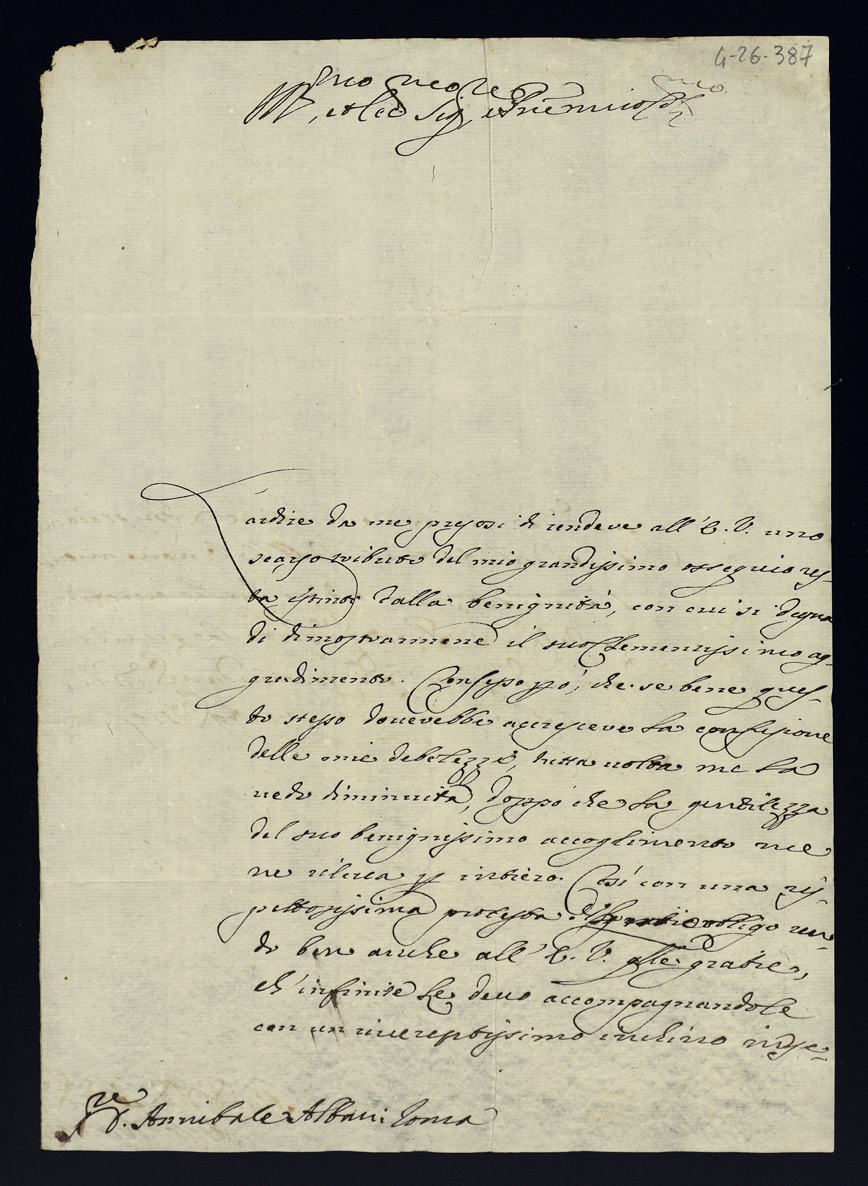 4-26-387
Ill.mo et Rev.mo Sig.re e Prone mio Col.mo
L'ardire da me presosi di rendere all'E. V. uno
scarso tributo del mio grandissimo ossequio res-
ta estinto dalla benignità, con cui si degna
di dimostrarmene il suo Clementissimo ag-
gradimento. Confesso però, che se bene ques-
to stesso douerebbe accrescere la confusione
delle mie debolezze, tutta uolta me la
uedo diminuita, doppo che la gentilezza
del suo benignissimo accoglimento me
ne rileua per intiero. Così con una ris-
pettosissima protesta obligo ren-
do ben anche all'E. V. quelle gratie,
ch'infinite Le deuo accompagnandole
con un riuerentissimo inchino
D. Annibale Albani Roma